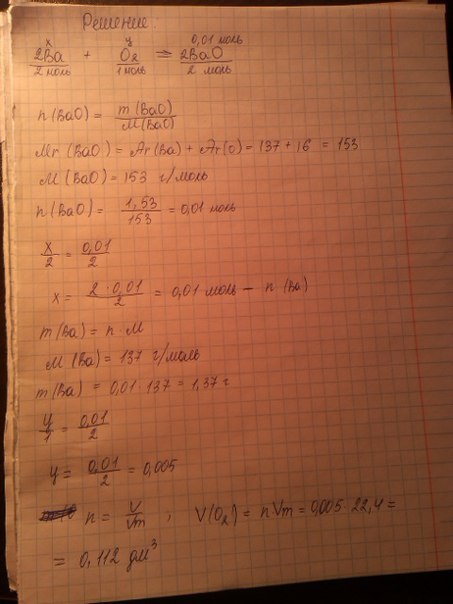 Решение:
x y 0,01 моль
2Ba + O2 = 2BaO
2 моль 1 моль 2 моль
n (BaO) = m (BaO) / M (BaO)
Mr (BaO) = Ar (Ba) + Ar (O) = 137 + 16 = 153
M (BaO) = 153 г/моль
n (BaO) = 1,53 / 153 = 0,01 моль
x / 2 = 0,01 / 2
x = 2 · 0,01 / 2 = 0,01 моль – n (Ba)
m (Ba) = n · M
M (Ba) = 137 г/моль
m (Ba) = 0,01 · 137 = 1,37 г
y / 1 = 0,01 / 2
y = 0,01 / 2 = 0,005
n = V / Vm ; V (O2) = nVm = 0,005 · 22,4 =
= 0,112 дм³